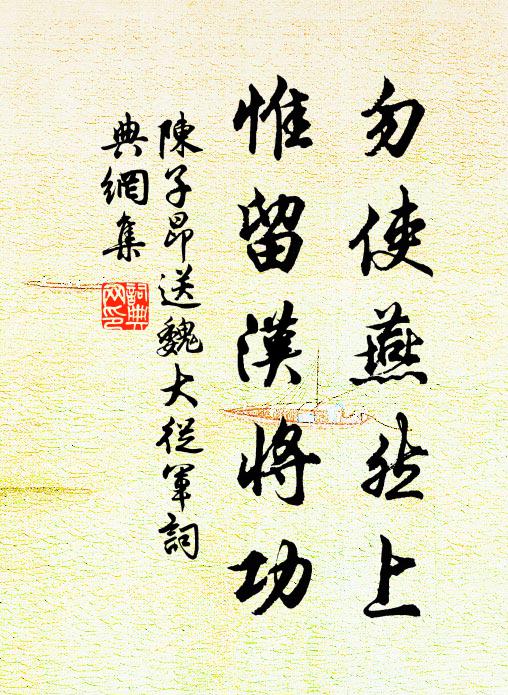 勿使燕然上
惟留漢將功
陳子昂送魏大從軍詞
典網集
詞典
网印